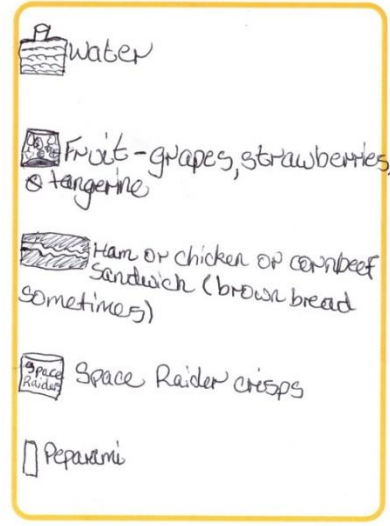 Water
Fruit - grapes, strawberries,
& tangerine
Ham or chicken or cornbeef
Sandwich (brown bread
sometimes)
Space
Raiders
Space Raider crisps
Peparami